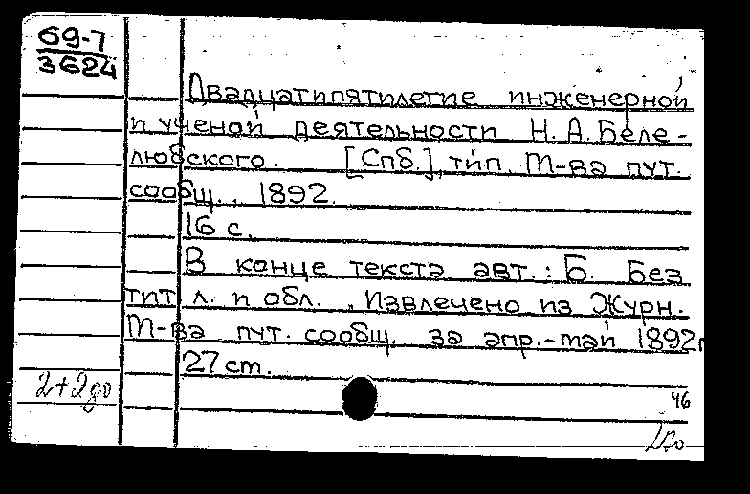 69-7
3624
Двадцатипятилетие инженерной
и ученой деятельности Н. А. Беле-
любского. [Спб.], тип. т-ва пут.
сообщ., 1892.
16 с.
В конце текста авт.: Б. Без
тит. л. и обл. Извлечено из Журн.
т-ва пут. сообщ. за апр.-май 1892 г.
27 ст.
2+2до
46